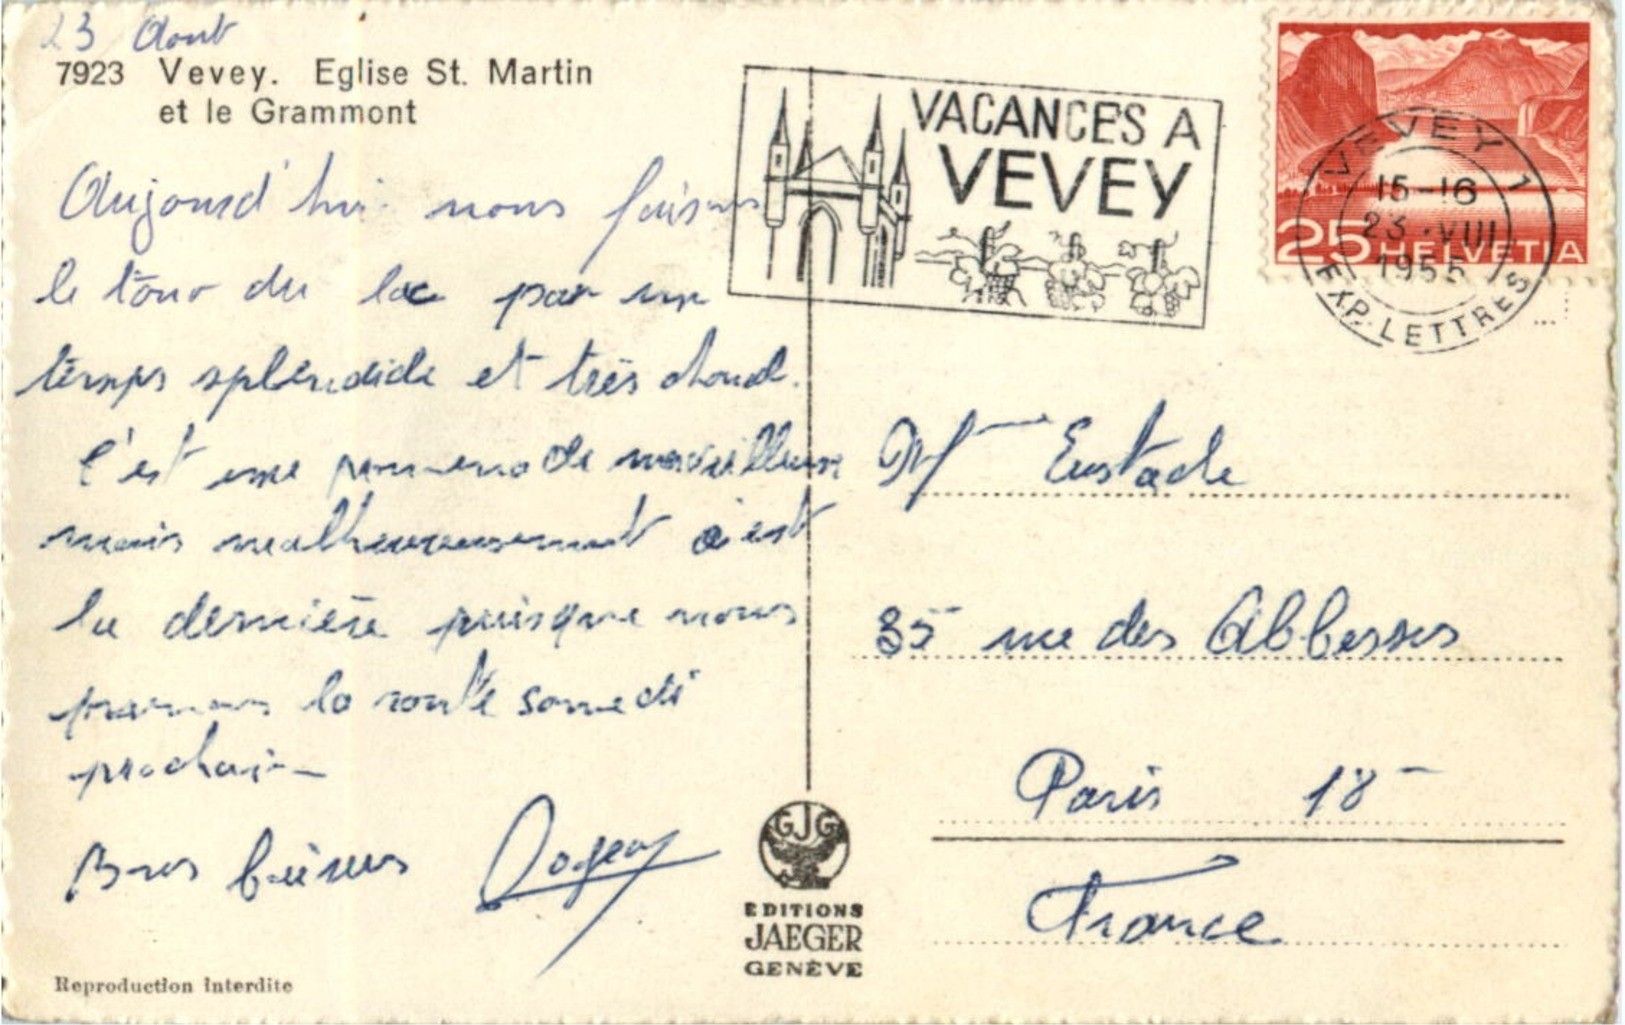 23 Aout
7923 Vevey. Eglise St. Martin
et le Grammont
Aujourd'hui nous faisons
le tour du lac par un
temps splendide et très chaud.
C'est une promenade merveilleuse
mais malheureusement c'est
la dernière puisque nous
prenons la route samedi
prochain
Bons baisers Roger
Reproduction interdite
VACANCES A
VEVEY
VEVEY 1
15-16
23.VIII
1955
EXP. LETTRES
25 HELVETIA
Mme Eustache
35 rue des Abbesses
Paris 18
France
GJG
EDITIONS
JAEGER
GENÈVE